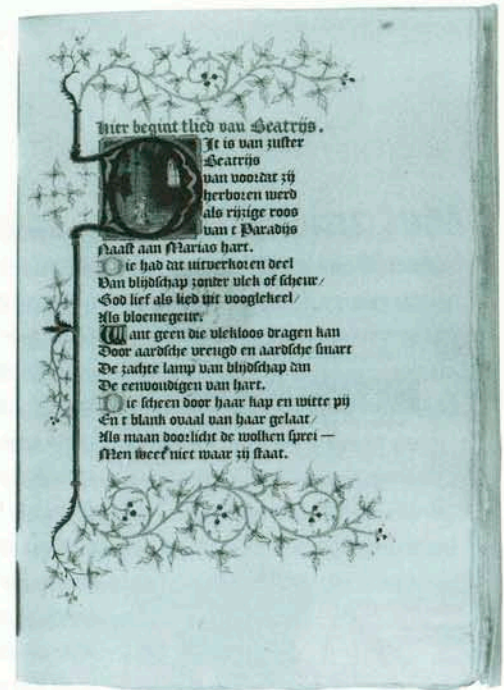 Hier begint tlied van Beatrijs.
Dit is van zuster
Beatrijs
van voordat zij
herboren werd
als rijzige roos
van t Paradijs
Naast aan Marias hart.
Die had dat uitverkoren deel
Van blijdschap zonder vlek of scheur/
God lief als lied uit vooglekeel/
Als bloemegeur.
Want geen die vlekloos dragen kan
Door aardsche vreugd en aardsche smart
De zachte lamp van blijdschap dan
De eenvoudigen van hart.
Die scheen door haar kap en witte pij
En t blank ovaal van haar gelaat/
Als maan doorlicht de wolken sprei —
Men weet niet waar zij staat.